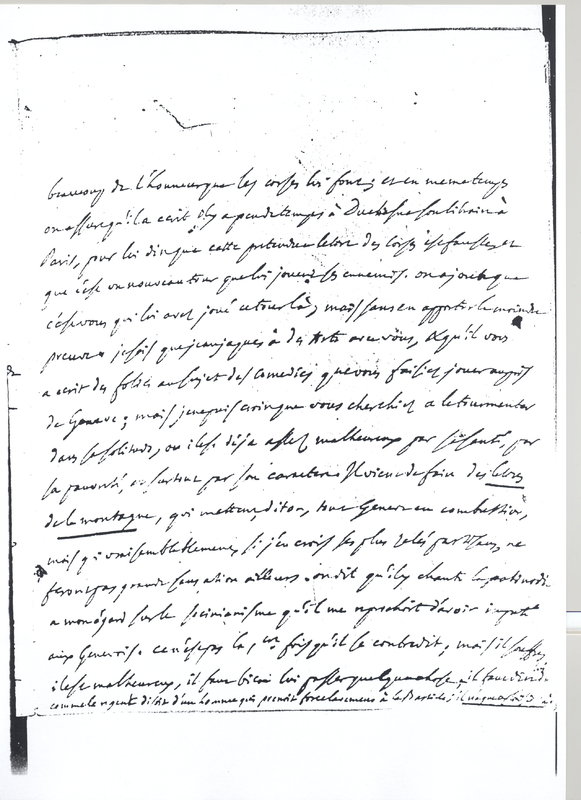 beaucoup de l'honneur que les corses lui font; et en meme temps
on assure qu'il a écrit il y a peu de temps à Duchesne son libraire à
Paris, pour lui dire que cette pretendue lettre des corses est fausse, et
que c'est un nouveau tour que lui jouent ses ennemis. on ajoute que
c'est vous qui lui avez joué ce tour là, mais sans en apporter la moindre
preuve. je sais que jean jaques à des torts avec vous, & qu'il vous
a ecrit des folies au sujet des comedies que vous faisiez jouer auprès
de Geneve; mais je ne puis croire que vous cherchiez a le tourmenter
dans sa solitude, ou il est déja assez malheureux par sa santé, par
sa pauvreté, et surtout par son caractere. Il vient de faire des lettres
de la montagne, qui mettent, dit on, tout Geneve en combustion,
mais qui vraisemblablement, si j'en crois ses plus zelés partisans, ne
feront pas grande sensation ailleurs. on dit qu'il y chante la palinodie
a mon égard sur le socinianisme qu'il me reprochoit d'avoir imputé
aux Genevois. ce n'est pas la 1ere fois qu'il se contredit, mais il souffre,
il est malheureux, il faut bien lui passer quelque chose. il faut dire
comme le regent disoit d'un homme qui prenoit force lavemens à la Bastille; il n'a que ce